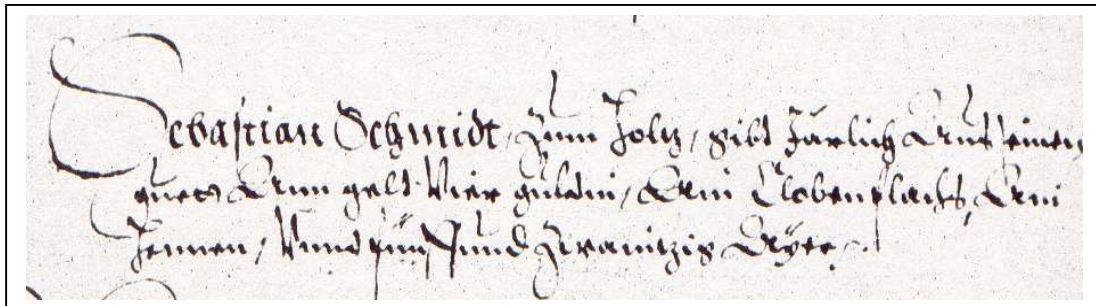 Sebastian Schmidt, Zum Holtz, gibt Järlich Aus seinem
guet, Ann gelt Vier guldin, Ain Clobenflachs, Ain
Hennen, Vnnd fünff Vnnd Zwaintzig Ayer.